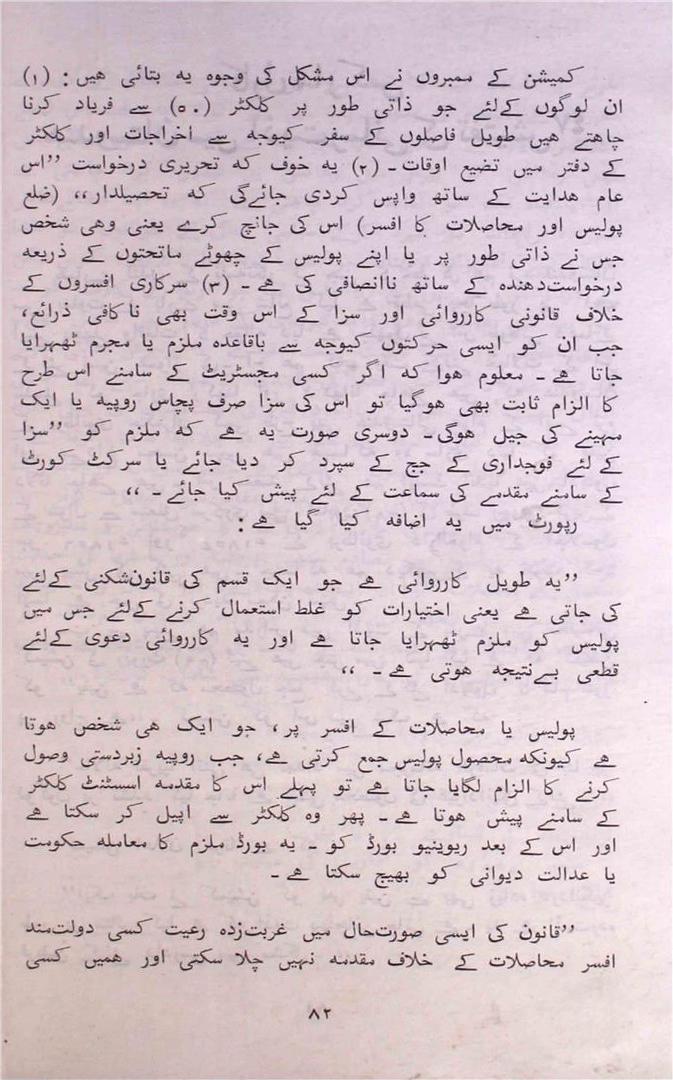 کمیشن کے ممبروں نے اس مشکل کی وجوہ یہ بتائی ھیں : (۱)
ان لوگوں کےلئے جو ذاتی طور پر کلکٹر (۵۰) سے فریاد کرنا
چاھتے ھیں طویل فاصلوں کے سفر کیوجہ سے اخراجات اور کلکٹر
کے دفتر میں تضیع اوقات ۔ (۲) یہ خوف کہ تحریری درخواست ”اس
عام ھدایت کے ساتھ واپس کردی جائےگی کہ تحصیلدار،، (ضلع
پولیس اور محاصلات کا افسر) اس کی جانچ کرے یعنی وھی شخص
جس نے ذاتی طور پر یا اپنے پولیس کے چھوٹے ماتحتوں کے ذریعہ
درخواست‌دھندہ کے ساتھ ناانصافی کی ھے ۔ (۳) سرکاری افسروں کے
خلاف قانونی کارروائی اور سزا کے اس وقت بھی ناکافی ذرائع،
جب ان کو ایسی حرکتوں کیوجہ سے باقاعدہ ملزم یا مجرم ٹھہرایا
جاتا ھے ۔ معلوم ھوا کہ اگر کسی مجسٹریٹ کے سامنے اس طرح
کا الزام ثابت بھی ھوگیا تو اس کی سزا صرف پچاس روپیہ یا ایک
مہینے کی جیل ھوگی ۔ دوسری صورت یہ ھے کہ ملزم کو ”سزا
کے لئے فوجداری کے جج کے سپرد کر دیا جائے یا سرکٹ کورٹ
کے سامنے مقدمے کی سماعت کے لئے پیش کیا جائے ۔ ،،
رپورٹ میں یہ اضافہ کیا گیا ھے :
”یہ طویل کارروائی ھے جو ایک قسم کی قانون‌شکنی کےلئے
کی جاتی ھے یعنی اختیارات کو غلط استعمال کرنے کےلئے جس میں
پولیس کو ملزم ٹھہرایا جاتا ھے اور یہ کارروائی دعوی کےلئے
قطعی بےنتیجہ ھوتی ھے ۔ ،،
پولیس یا محاصلات کے افسر پر، جو ایک ھی شخص ھوتا
ھے کیونکہ محصول پولیس جمع کرتی ھے، جب روپیہ زبردستی وصول
کرنے کا الزام لگایا جاتا ھے تو پہلے اس کا مقدمہ اسسٹنٹ کلکٹر
کے سامنے پیش ھوتا ھے ۔ پھر وہ کلکٹر سے اپیل کر سکتا ھے
اور اس کے بعد ریوینیو بورڈ کو ۔ یہ بورڈ ملزم کا معاملہ حکومت
یا عدالت دیوانی کو بھیج سکتا ھے ۔
”قانون کی ایسی صورت‌حال میں غربت‌زدہ رعیت کسی دولت‌مند
افسر محاصلات کے خلاف مقدمہ نہیں چلا سکتی اور ھمیں کسی
۸۲